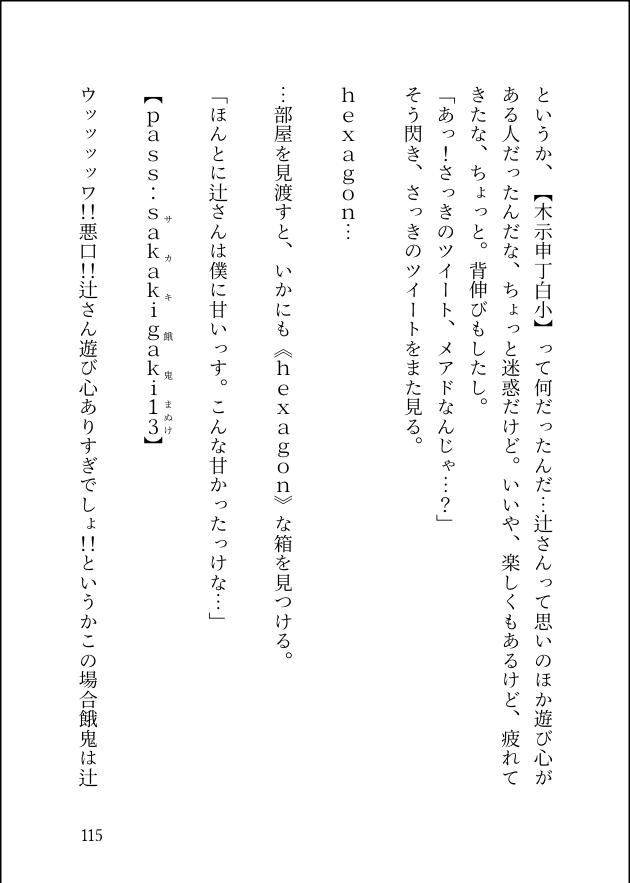 というか、【木示申丁白小】って何だったんだ…辻さんって思いのほか遊び心が
ある人だったんだな、ちょっと迷惑だけど。いいや、楽しくもあるけど、疲れて
きたな、ちょっと。背伸びもしたし。
「あっ！さっきのツイート、メアドなんじゃ…？」
そう閃き、さっきのツイートをまた見る。
ｈｅｘａｇｏｎ…
…部屋を見渡すと、いかにも《ｈｅｘａｇｏｎ》な箱を見つける。
「ほんとに辻さんは僕に甘いっす。こんな甘かったっけな…」
【ｐａｓｓ：ｓａｋａｋｉｇａｋｉ１３】
サカキ餓鬼まぬけ
ウッッッッワ!!悪口!!辻さん遊び心ありすぎでしょ!!というかこの場合餓鬼は辻
115